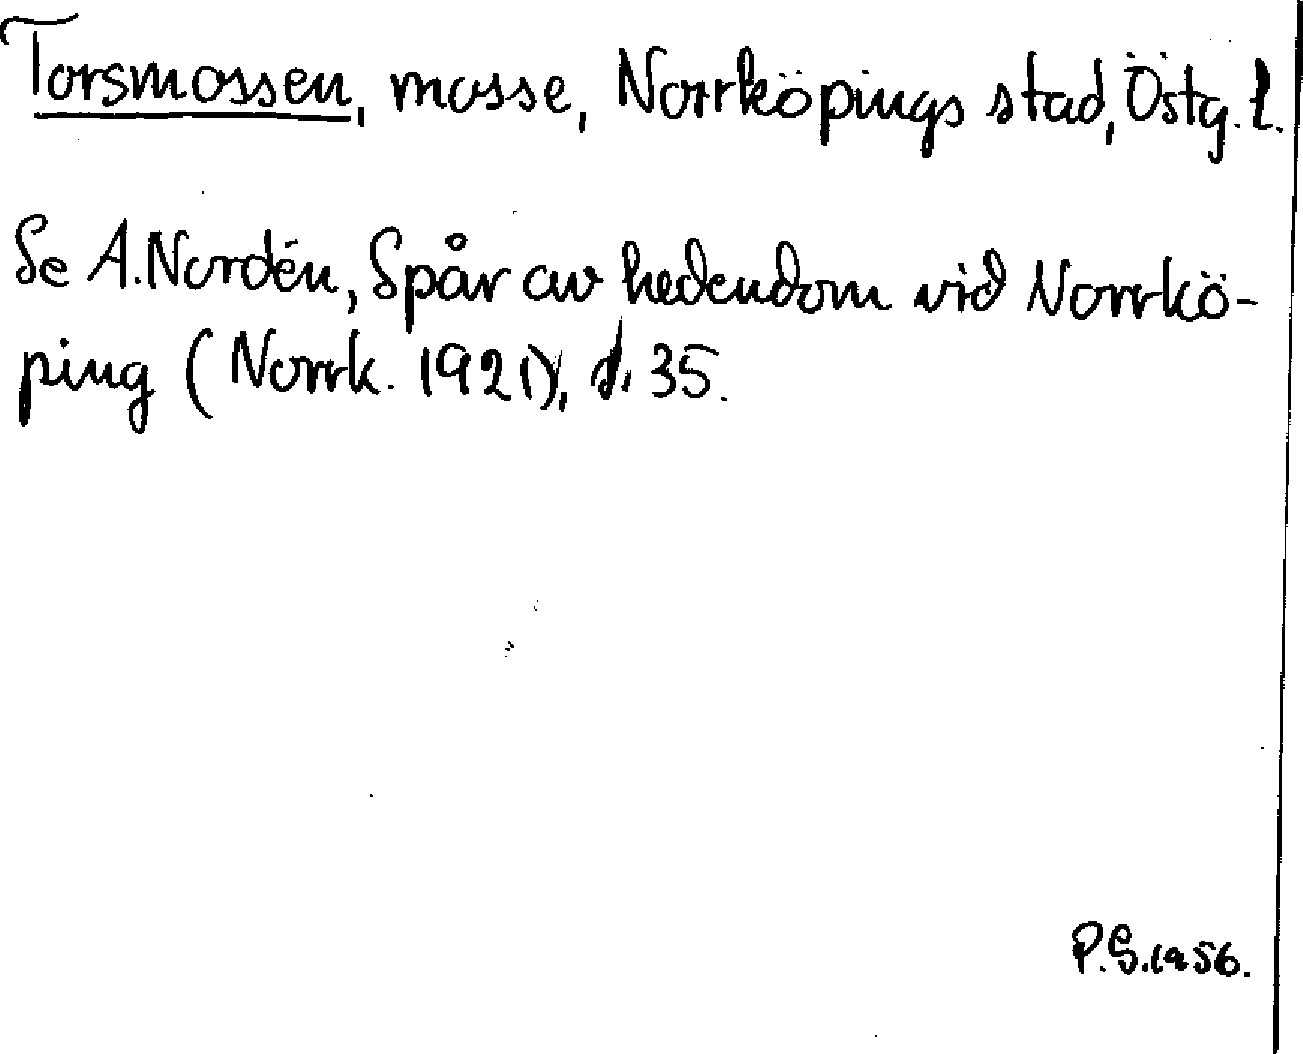 Torsmossen, mosse, Norrköpings stad, Östg. l.
Se A. Nordén, Spår av hedendom vid Norrkö-
ping (Norrk. 1921), s. 35.
P.S. 1956.